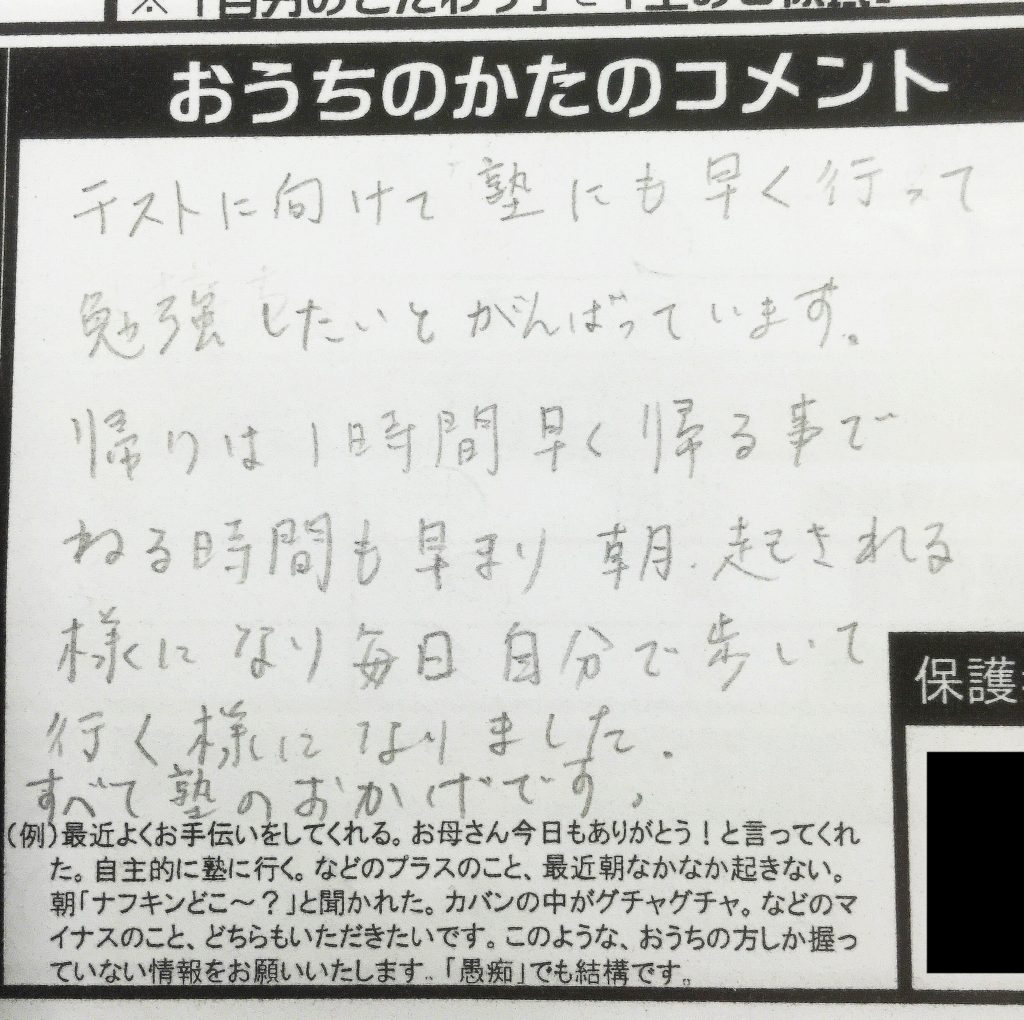 おうちのかたのコメント
テストに向けて塾にも早く行って
勉強したいとがんばっています。
帰りは1時間早く帰る事で
ねる時間も早まり朝、起きれる
様になり毎日自分で歩いて
行く様になりました。
すべて塾のおかげです。
保護
(例)最近よくお手伝いをしてくれる。お母さん今日もありがとう!と言ってくれ
た。自主的に塾に行く。などのプラスのこと、最近朝なかなか起きない。
朝「ナフキンどこ～?」と聞かれた。カバンの中がグチャグチャ。などのマ
イナスのこと、どちらもいただきたいです。このような、おうちの方しか握っ
ていない情報をお願いいたします。「愚痴」でも結構です。